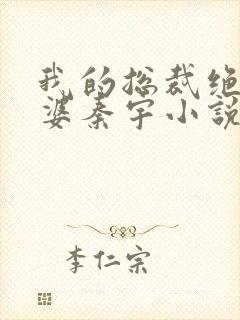 我的总裁绝
婆秦宇小説
李仁宗